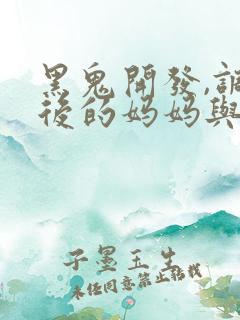 黑鬼開發,調
後的媽媽與
子墨玉生
未经同意禁止转载